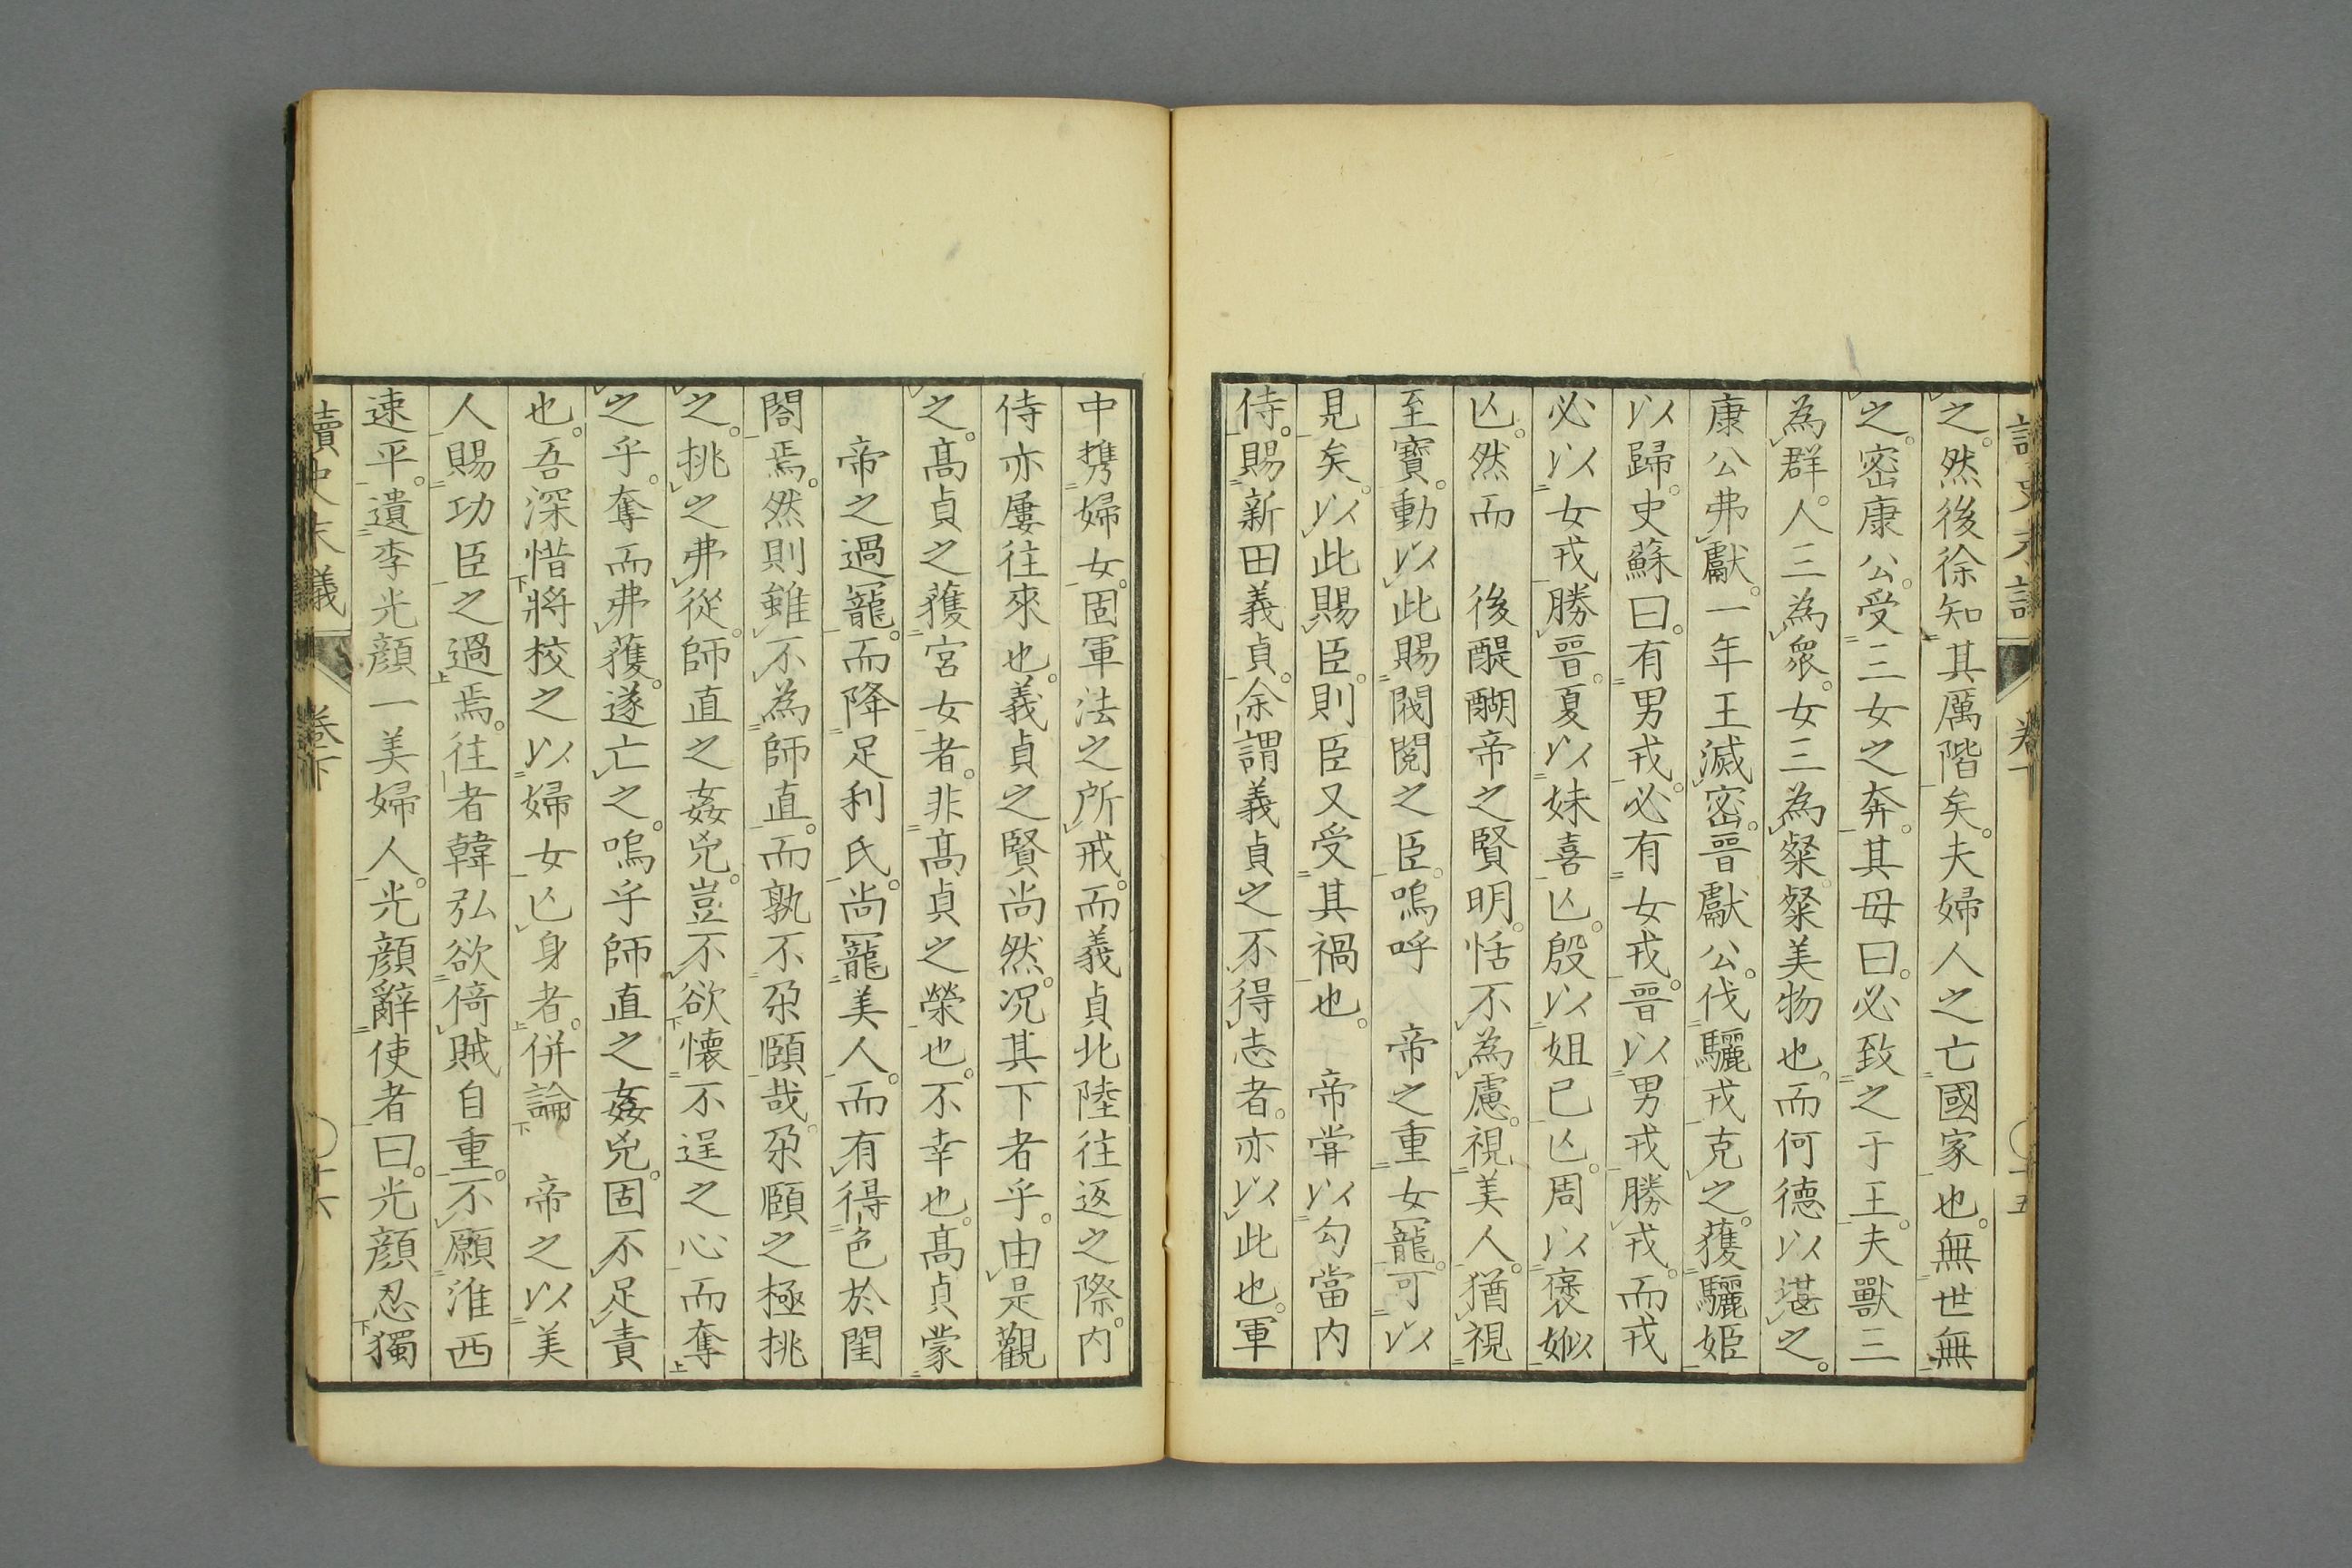 之。然後徐知其厲階矣。夫婦人之亡國家也。無世無
之。密康公。受三女之奔。其母曰。必致之于王。夫獸三
為群。人三為衆。女三為粲。粲美物也。而何德以堪之。
康公弗獻。一年王滅密。晉獻公。伐驪戎克之。獲驪姬
以歸。史蘇曰。有男戎。必有女戎。晉以男戎勝戎。而戎
必以女戎勝晉。夏以妺喜亾。殷以妲已亾。周以褒姒
亾。然而 後醍醐帝之賢明。恬不為慮。視美人。猶視
至寶。動以此賜閥閱之臣。嗚呼 帝之重女寵。可以
見矣。以此賜臣。則臣又受其禍也。 帝甞以勾當內
侍。賜新田義貞。余謂義貞之不得志者。亦以此也。軍
中携婦女。固軍法之所戒。而義貞北陸往返之際。內
侍亦屢往來也。義貞之賢尚然。况其下者乎。由是觀
之。髙貞之獲宮女者。非髙貞之榮也。不幸也。髙貞蒙
帝之過寵。而降足利氏。尚寵美人。而有得色於閨
閤焉。然則雖不為師直。而孰不朶頤哉。朶頤之極挑
之。挑之弗從。師直之姦兇。豈不欲懷不逞之心而奪
之乎。奪而弗獲。遂亡之。嗚乎師直之姦兇。固不足責
也。吾深惜將校之以婦女亾身者。併論 帝之以美
人賜功臣之過焉。往者韓弘欲倚賊自重。不願淮西
速平。遺李光顔一美婦人。光顔辭使者曰。光顔忍獨
讀史末議 卷下 十六